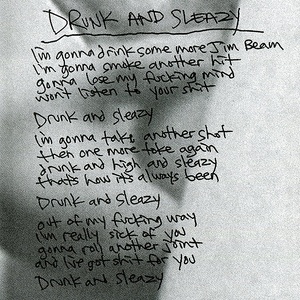 DRUNK AND SLEAZY
I'm gonna drink some more Jim Beam
I'm gonna smoke another hit
gonna lose my fucking mind
won't listen to your shit
Drunk and sleazy
I'm gonna take another shot
then one more toke again
drunk and high and sleazy
that's how it's always been
Drunk and sleazy
out of my fucking way
I'm really sick of you
gonna roll another joint
and I've got shit for you
Drunk and sleazy